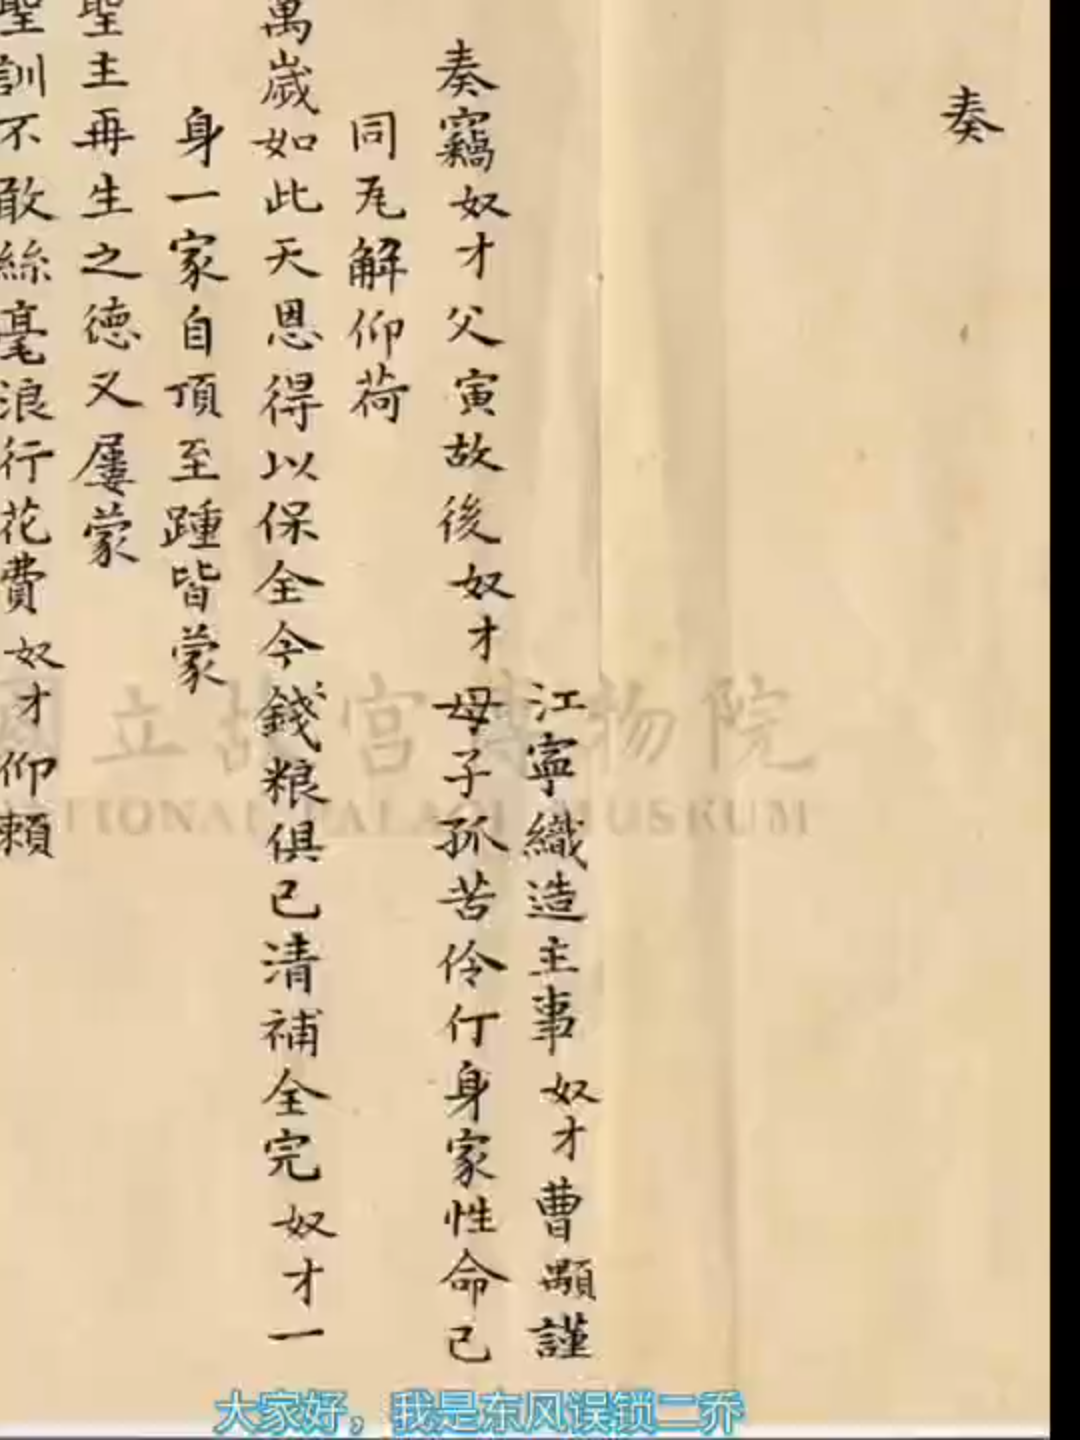 奏
江寧織造主事奴才曹顒謹
奏竊奴才父寅故後奴才母子孤苦伶仃身家性命已
同瓦解仰荷
萬歲如此天恩得以保全今錢粮俱已清補全完奴才一
身一家自頂至踵皆蒙
聖主再生之德又屢蒙
聖訓不敢絲毫浪行花費奴才仰賴
國立故宮博物院
NATIONAL PALACE MUSEUM
大家好，我是东风误锁二乔